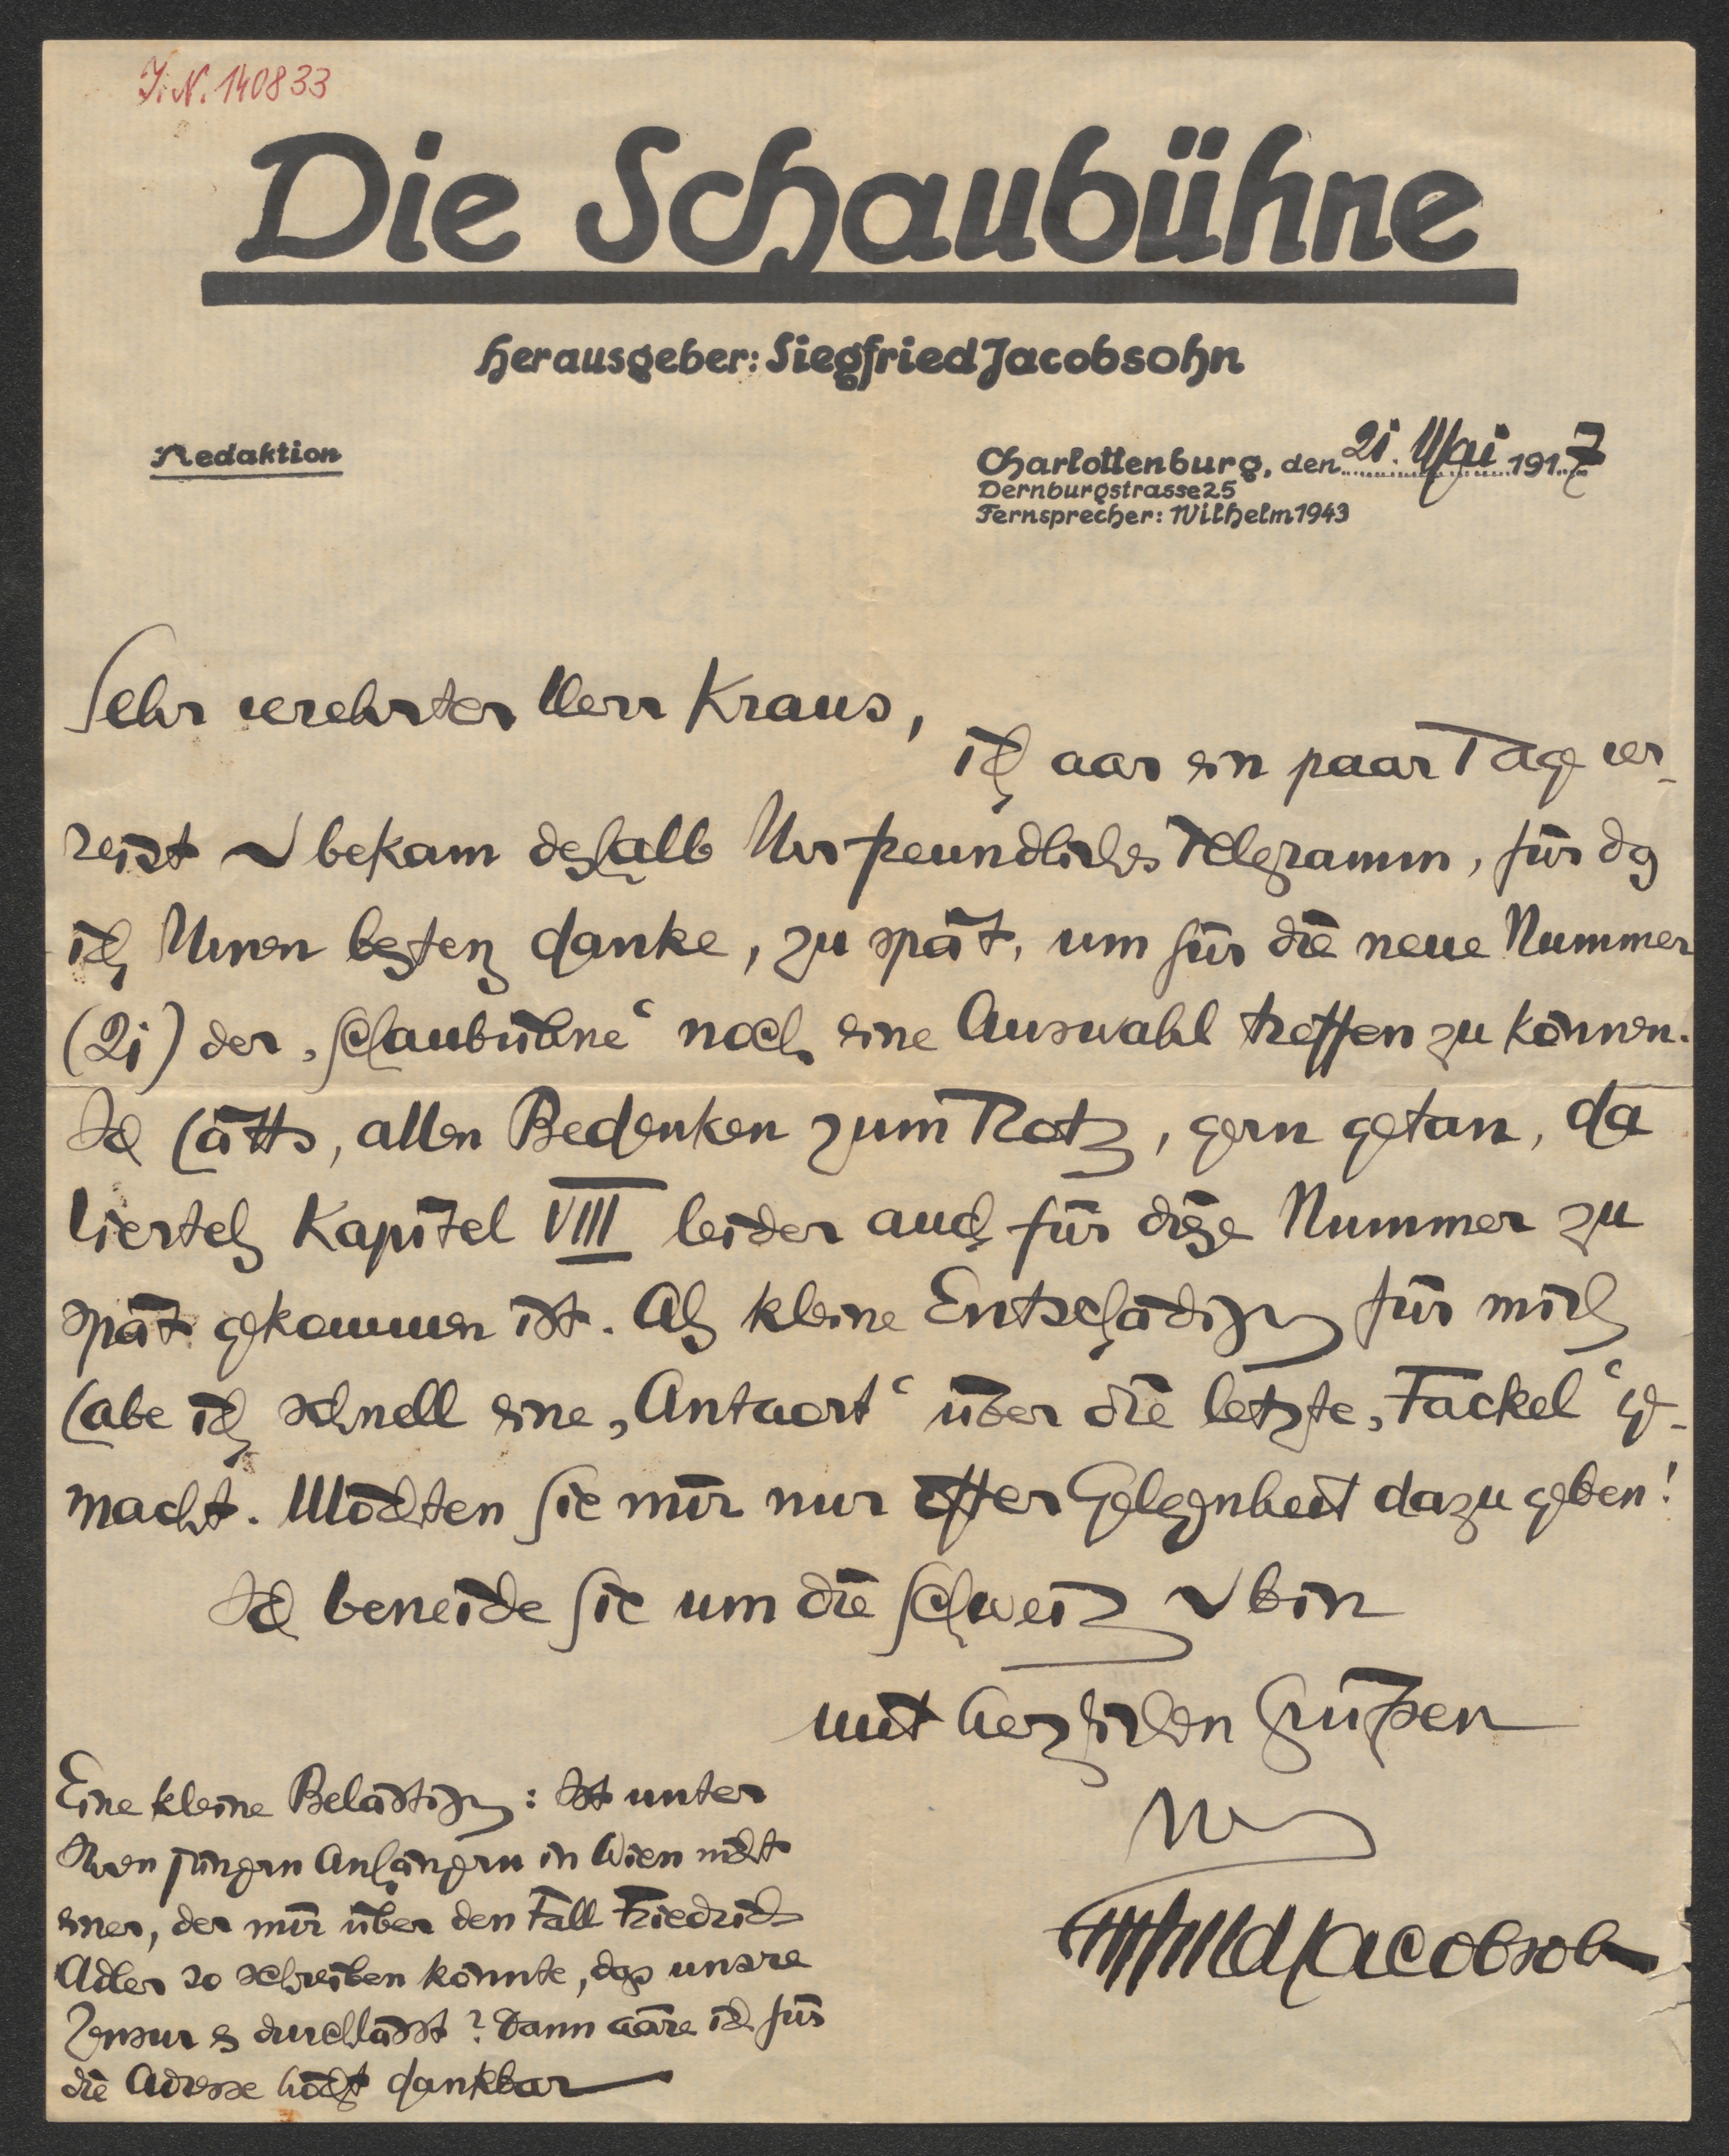 I.N. 140833
Die Schaubühne
Herausgeber: Siegfried Jacobsohn
Redaktion
Charlottenburg, den 21. Mai 1917
Dernburgstrasse 25
Fernsprecher: Wilhelm 1943
Sehr verehrter Herr Kraus,
ich war ein paar Tage ver-
reist u bekam deshalb Ihr freundliches Telegramm, für das
ich Ihnen bestens danke, zu spät, um für die neue Nummer
(21) der „Schaubühne“ noch eine Auswahl treffen zu können.
Ich hätts, allen Bedenken zum Trotz, gern getan, da
Viertels Kapitel VIII leider auch für diese Nummer zu
spät gekommen ist. Als kleine Entschädigung für mich
habe ich schnell eine „Antwort“ über die letzte „Fackel“ ge-
macht. Möchten Sie mir nur öfter Gelegenheit dazu geben!
Ich beneide Sie um die Schweiz u bin
mit herzlichen Grüßen
Ihr
Siegfried Jacobsohn
Eine kleine Belästigung: Ist unter
Ihren jüngern Anhängern in Wien nicht
einer, der mir über den Fall Friedrich
Adler so schreiben könnte, dass unsre
Zensur es durchlässt? Dann wäre ich für
die Adresse höchst dankbar